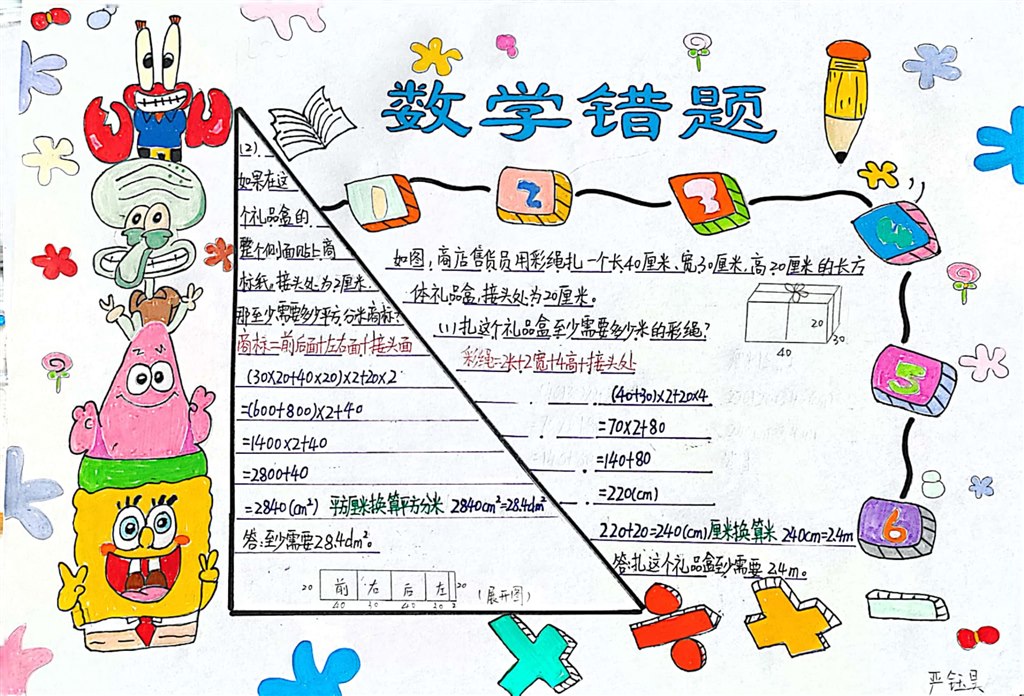 数学错题
1 2 3 4 5 6
如图,商店售货员用彩绳扎一个长40厘米,宽30厘米,高20厘米的长方
体礼品盒,接头处为20厘米。
(1)扎这个礼品盒至少需要多少米的彩绳?
彩绳=2长+2宽+4高+接头处
(40+30)×2+20×4
=70×2+80
=140+80
=220(cm)
220+20=240(cm)厘米换算米 240cm=2.4m
答:扎这个礼品盒至少需要2.4m。
20
30
40
(2).
如果在这
个礼品盒的
整个侧面贴上商
标纸,接头处为2厘米,
那至少需要多少平方分米商标?
商标=前后面+左右面+接头面
(30×20+40×20)×2+20×2
=(600+800)×2+40
=1400×2+40
=2800+40
=2840(cm²) 平方厘米换算平方分米 2840cm²=28.4dm²
答:至少需要28.4dm²。
20 前 右 后 左 20 (展开图)
40 30 40 30 2